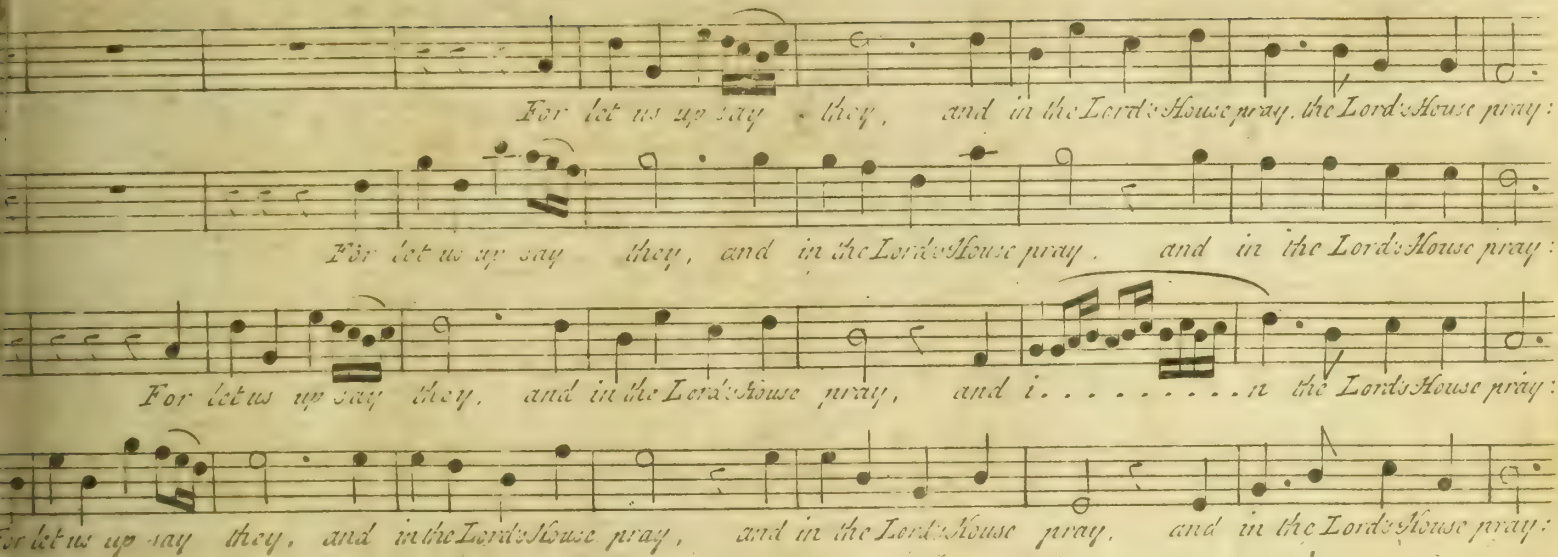 For let us up say . they, and in the Lord's House pray, the Lord's House pray:
For let us up say they, and in the Lord's House pray, and in the Lord's House pray:
For let us up say they, and in the Lord's House pray, and i. . . . . . . . . . n the Lord's House pray:
For let us up say they, and in the Lord's House pray, and in the Lord's House pray, and in the Lord's House pray: